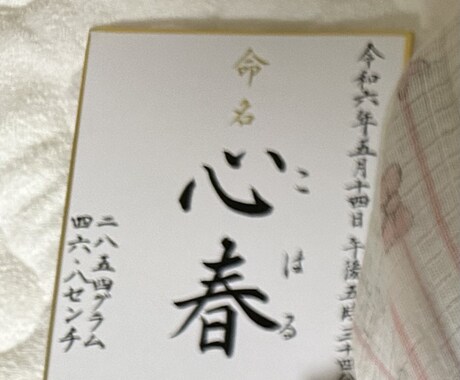 令和六年五月十四日 午後五時三十四分
命名
心春
こはる
二八五四グラム
四六・八センチ